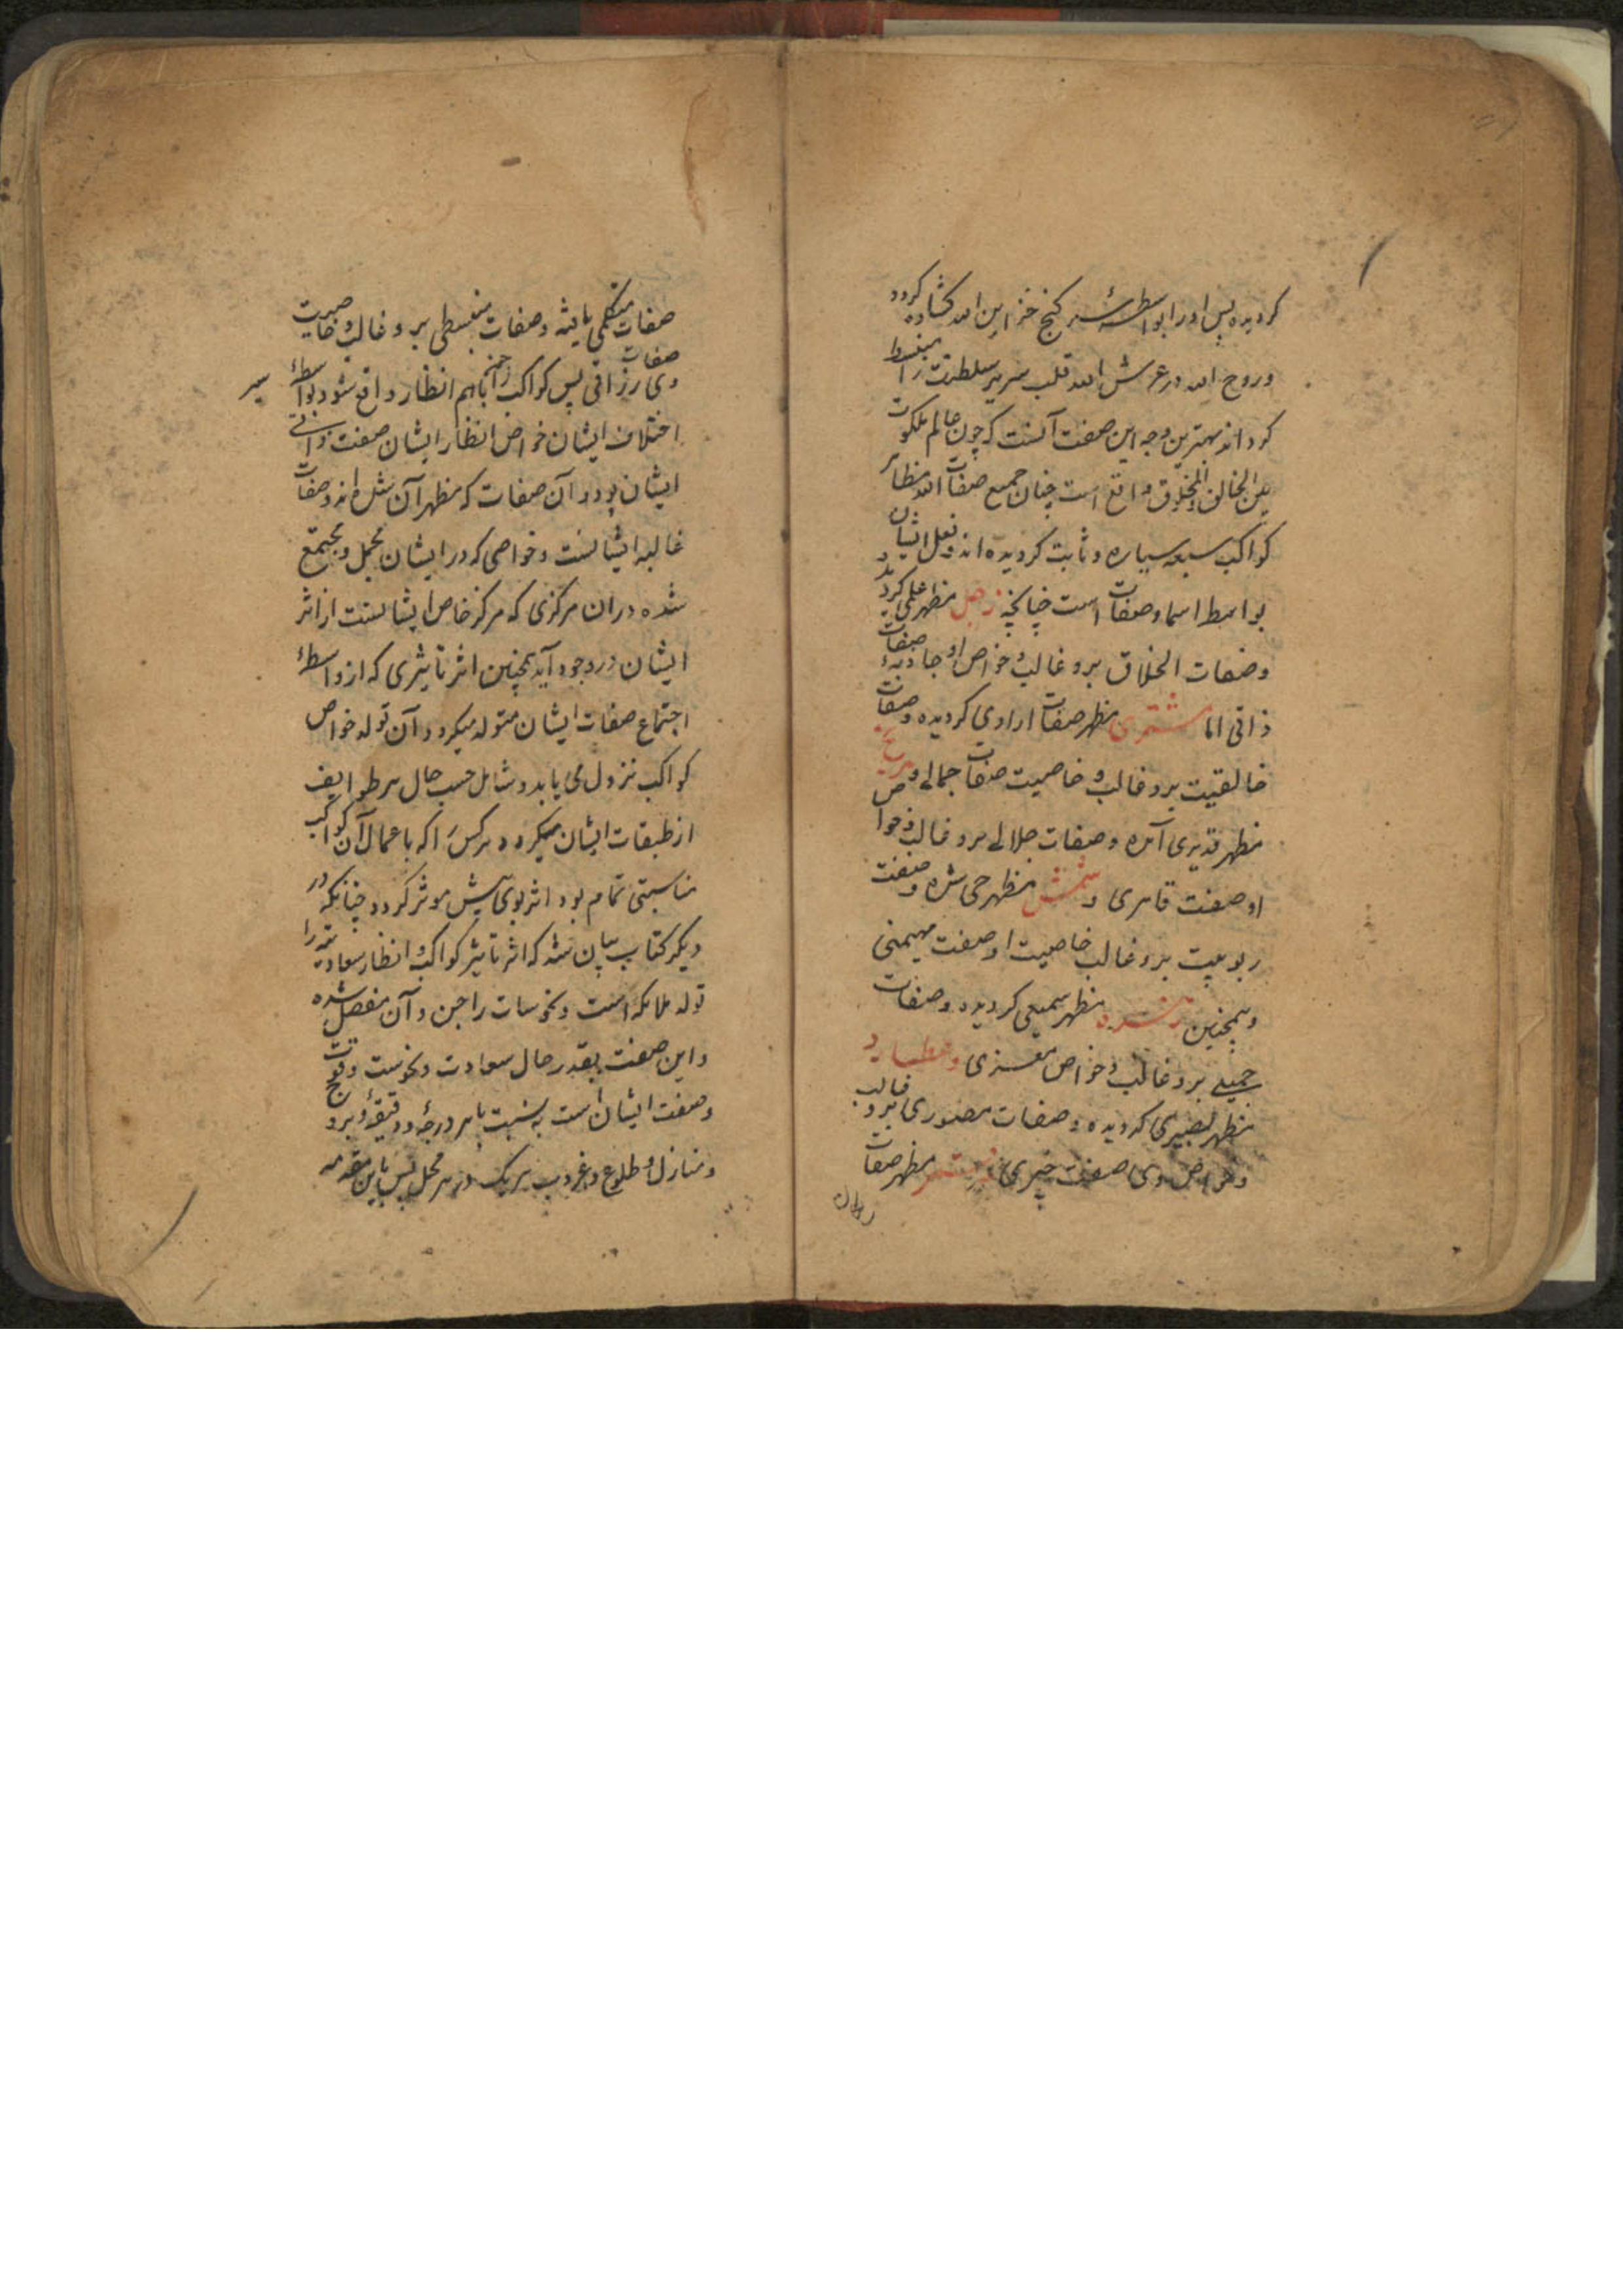 کردیده پس اورا بواسطهٔ سر کنج خزاین الله کشاده کردد
وروح الله در عرش الله قلب سریر سلطنت را منبسط
کرداند بهترین وجه این صفت آنست که چون عالم ملکوت
بین الخالق والمخلوق واقع است چنان جمیع صفات الله مظاهر
کواکب سبعه سیاره و ثابت کردیده اند و فعل ایشان
بواسط اسما وصفات است چنانچه زحل مظهر علمی کردید
وصفات الخلاق برو غالب و خواص او جاذبهٔ صفات
ذاتی اما مشتری مظهر صفات ارادی کردیده وصفات
خالقیت برو غالب و خاصیت صفات جمالی و مریخ
مظهر قدیری آمده وصفات جلالی برو غالب و خواص
او صفت قاهری و شمش مظهر حی شده وصفت
ربوبیت برو غالب خاصیت او صفت مهیمنی
وهمچنین زهره مظهر سمیعی کردیده وصفات
جمیلی برو غالب و خواص معزی و عطارد
مظهر بصیری کردیده وصفات مصوری برو غالب
وخواص وی صفت خبیری و قمر مظهر صفات
صفات متکلمی یافته وصفات منبسطی برو غالب و خاصیت
وی صفات رزاقی پس کواکب را چون باهم انظار واقع شود بواسطهٔ سیر
اختلاف ایشان خواص انظار ایشان صفت ذاتی
ایشان بود و آن صفات که مظهر آن شده اند وصفات
غالبه ایشانست وخواصی که در ایشان مجمل ومجتمع
شده در ان مرکزی که مرکز خاص ایشانست از اثر
ایشان در وجود آید همچنین اثر تاثیری که از واسطهٔ
اجتماع صفات ایشان متولد میکردد آن تولد خواص
کواکب نزول می یابد و شامل حسب حال هر طوایف
از طبقات ایشان میکردد هر کس را که با عمال آن کواکب
مناسبتی تمام بود اثر بوی بیش موثر کردد چنانکه در
دیکر کتاب بیان شد که اثر تاثیر کواکب و انظار سعادتیه را
تولد ملائکه است ونحوسات را جن و آن مفصل شده
و این صفت بقدر حال سعادت ونحوست وقوت
وصفت ایشان است به نسبت با هر درجهٔ و دقیقهٔ و برج
ومنازل و طلوع وغروب هر یک در هر محل پس باین مقدمه